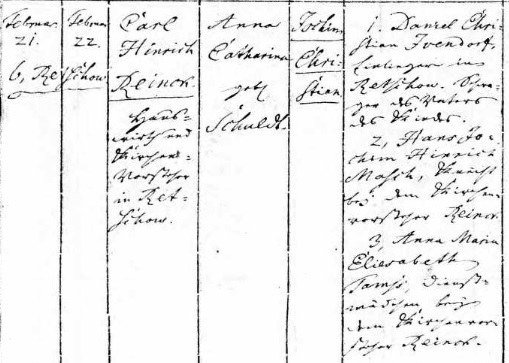 Februar
21.
b, Retschow
Februar
22.
Carl
Hinrich
Reinck.
Haus-
wirth und
Kirchen-
Vorsteher
in Ret-
schow.
Anna
Catharina
geb
Schuldt.
Jochim
Chri-
stian
1. Daniel Chri-
stian Ivendorf,
Einlieger in
Retschow. Schwa-
ger des Vaters
des Kindes.
2, Hans Jo-
chim Hinrich
Masch, Knecht
bei dem Kirchen-
vorsteher Reinck.
3, Anna Maria
Eliesabeth
Tamß, Dienst-
mädchen bey
dem Kirchenvor-
steher Reinck.